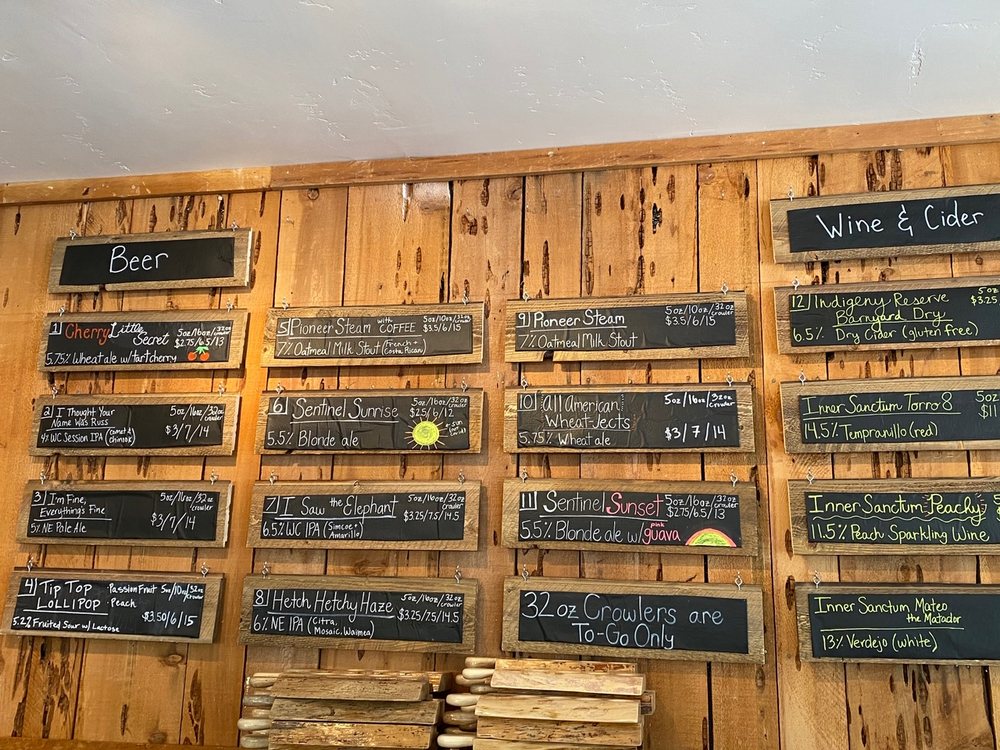 Beer
1 Cherry Little Secret 5oz/16oz/32oz crowler
$2.75/6.5/13
5.75% Wheat ale w/ tart cherry
2 I Thought Your Name Was Russ 5oz/16oz/32oz crowler
4% WC Session IPA (Comet & Chinook) $3/7/14
3 I'm Fine, Everything's Fine 5oz/16oz/32oz crowler
5% NE Pale Ale $3/7/14
4 Tip Top Lollipop Passion Fruit · Peach 5oz/10oz/32oz crowler
5.2% Fruited Sour w/ Lactose $3.50/6/15
5 Pioneer Steam with COFFEE 5oz/10oz/32oz crowler
$3.5/6/15
7% Oatmeal Milk Stout (French + Costa Rican)
6 Sentinel Sunrise 5oz/16oz/32oz crowler
$2.5/6/12
5.5% Blonde ale
7 I Saw the Elephant 5oz/16oz/32oz crowler
$3.25/7.5/14.5
6.5% WC IPA (Simcoe, Amarillo)
8 Hetch Hetchy Haze 5oz/16oz/32oz crowler
$3.25/7.5/14.5
6% NE IPA (Citra, Mosaic, Waimea)
9 Pioneer Steam 5oz/10oz/32oz crowler
$3.5/6/15
7% Oatmeal Milk Stout
10 All American Wheat-Jects 5oz/16oz/32oz crowler
5.75% Wheat ale $3/7/14
11 Sentinel Sunset 5oz/16oz/32oz crowler
$2.75/6.5/13
5.5% Blonde ale w/ pink guava
32oz Crowlers are
To-Go Only
Wine & Cider
12 Indigeny Reserve 5oz
Barnyard Dry $3.25
6.5% Dry Cider (gluten free)
Inner Sanctum Torro 8 5oz
$11
14.5% Tempranillo (red)
Inner Sanctum Peachy
11.5% Peach Sparkling Wine
Inner Sanctum Mateo
the Matador
13% Verdejo (white)